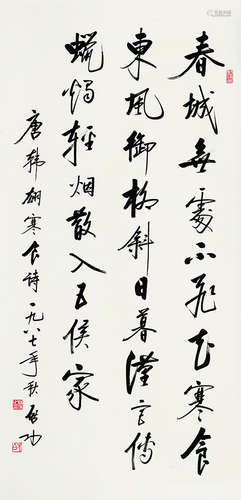 春城無處不飛花寒食
東風御柳斜日暮漢宮傳
蠟燭輕烟散入五侯家
唐韓翃寒食詩一九八七年秋啟功